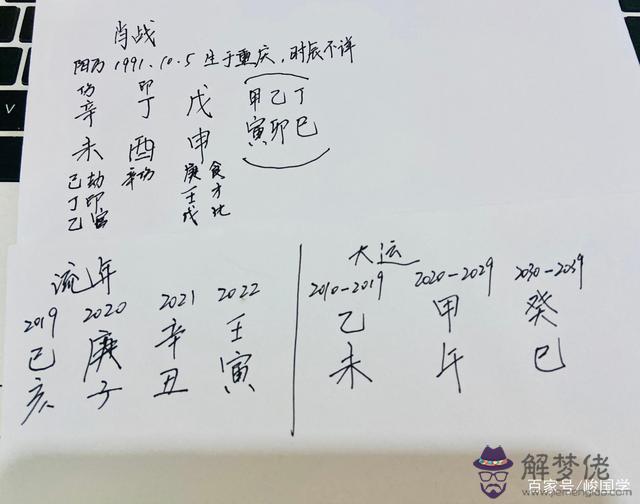 肖战
阳历 1991.10.5 生于重庆,时辰不详
伤 印
辛 丁 戊 甲乙丁
未 酉 申 寅卯巳
己劫 辛伤 庚食
丁印 壬才
乙官 戊比
流年
2019 2020 2021 2022
己 庚 辛 壬
亥 子 丑 寅
大运
2010-2019 2020-2029 2030-2039
乙 甲 癸
未 午 巳
解梦佬
www.jiemenglao.com
百家号/峻国学